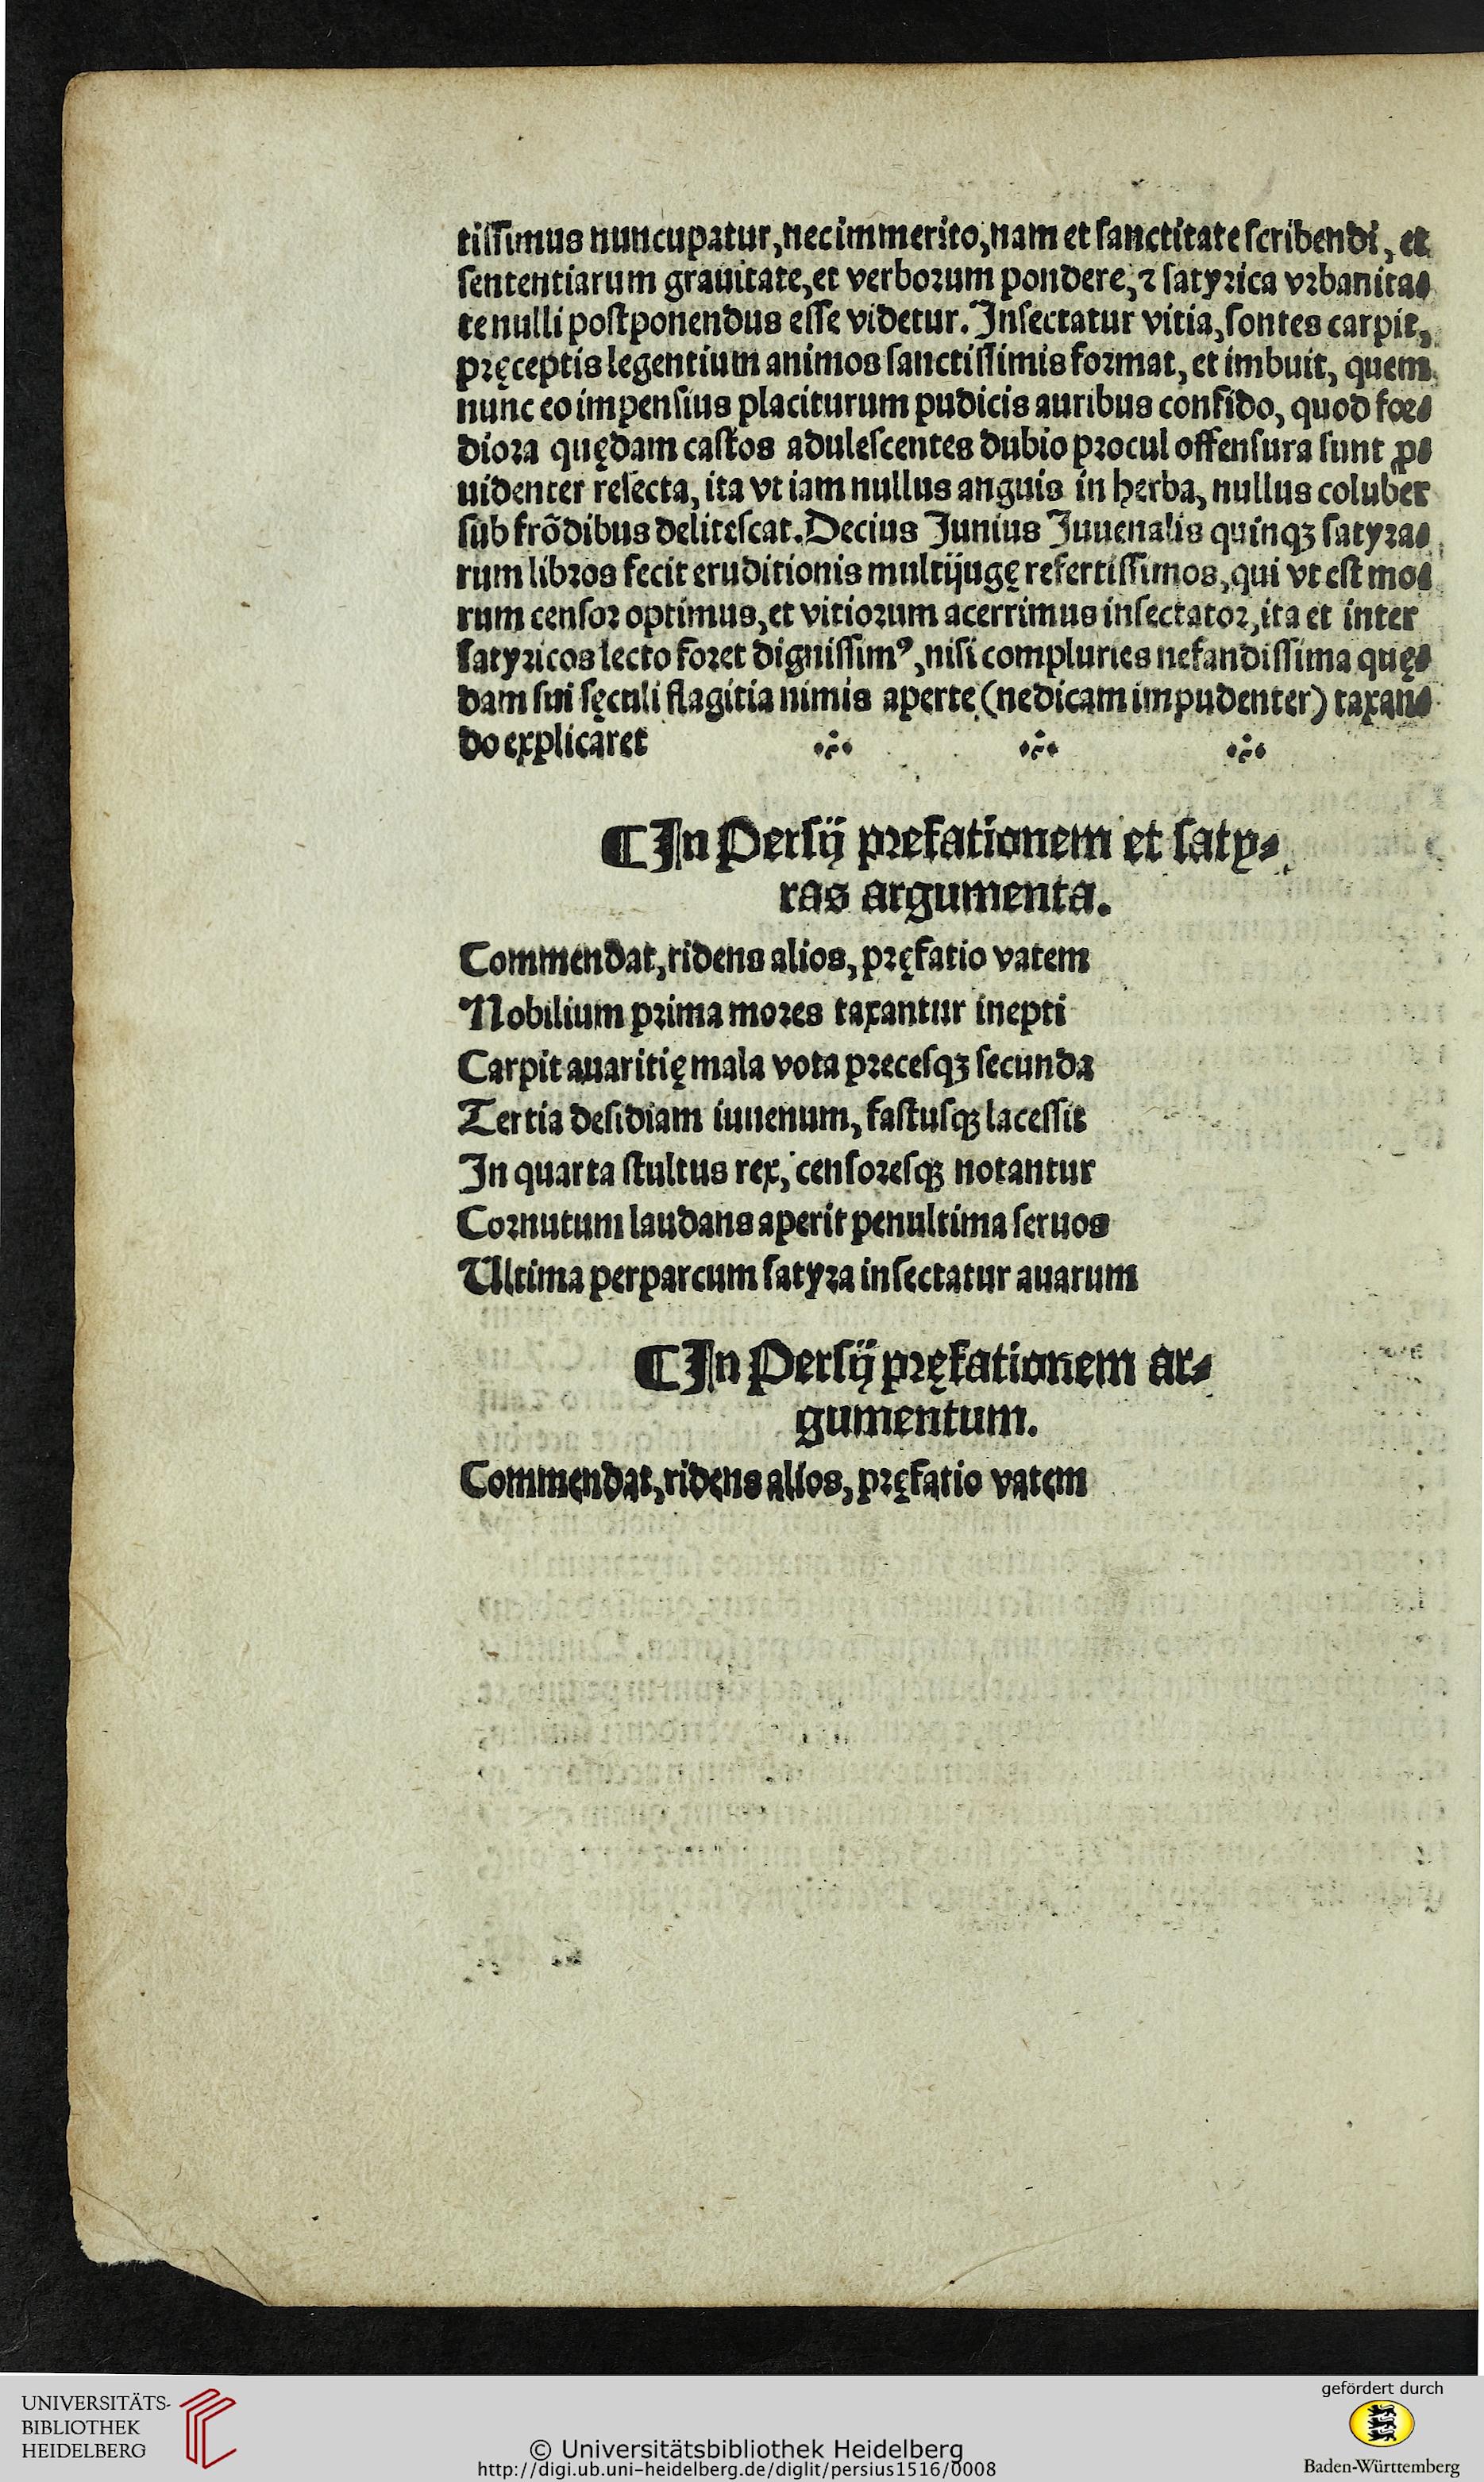 tissimus nuncupatur, nec immerito, nam et sanctitate scribendi, et
sententiarum grauitate, et verborum pondere, ⁊ satyrica vrbanita⸗
te nulli postponendus esse videtur. Insectatur vitia, sontes carpit,
pręceptis legentium animos sanctissimis format, et imbuit, quem
nunc eo impensius placiturum pudicis auribus confido, quod foe⸗
diora quędam castos adulescentes dubio procul offensura sunt ꝓ⸗
uidenter resecta, ita vt iam nullus anguis in hęrba, nullus coluber
sub frõdibus delitescat. Decius Junius Juuenalis quinqꝫ satyra⸗
rum libros fecit eruditionis multijugę refertissimos, qui vt est mo⸗
rum censor optimus, et vitiorum acerrimus insectator, ita et inter
satyricos lecto foret dignissimꝰ, nisi compluries nefandissima quę⸗
dam sui sęculi flagitia nimis aperte (ne dicam impudenter) taxan⸗
do explicaret
¶ In Persij prefationem et saty⸗
ras argumenta.
Commendat, ridens alios, pręfatio vatem
Nobilium prima mores taxantur inepti
Carpit auaritię mala vota precesqꝫ secunda
Tertia desidiam iuuenum, fastusqꝫ lacessit
In quarta stultus rex, censoresqꝫ notantur
Cornutum laudans aperit penultima seruos
Ultima perparcum satyra insectatur auarum
¶ In Persij pręfationem ar⸗
gumentum.
Commendat, ridens alios, pręfatio vatem
UNIVERSITÄTS-
BIBLIOTHEK
HEIDELBERG
© Universitätsbibliothek Heidelberg
http://digi.ub.uni-heidelberg.de/diglit/persius1516/0008
gefördert durch
Baden-Württemberg